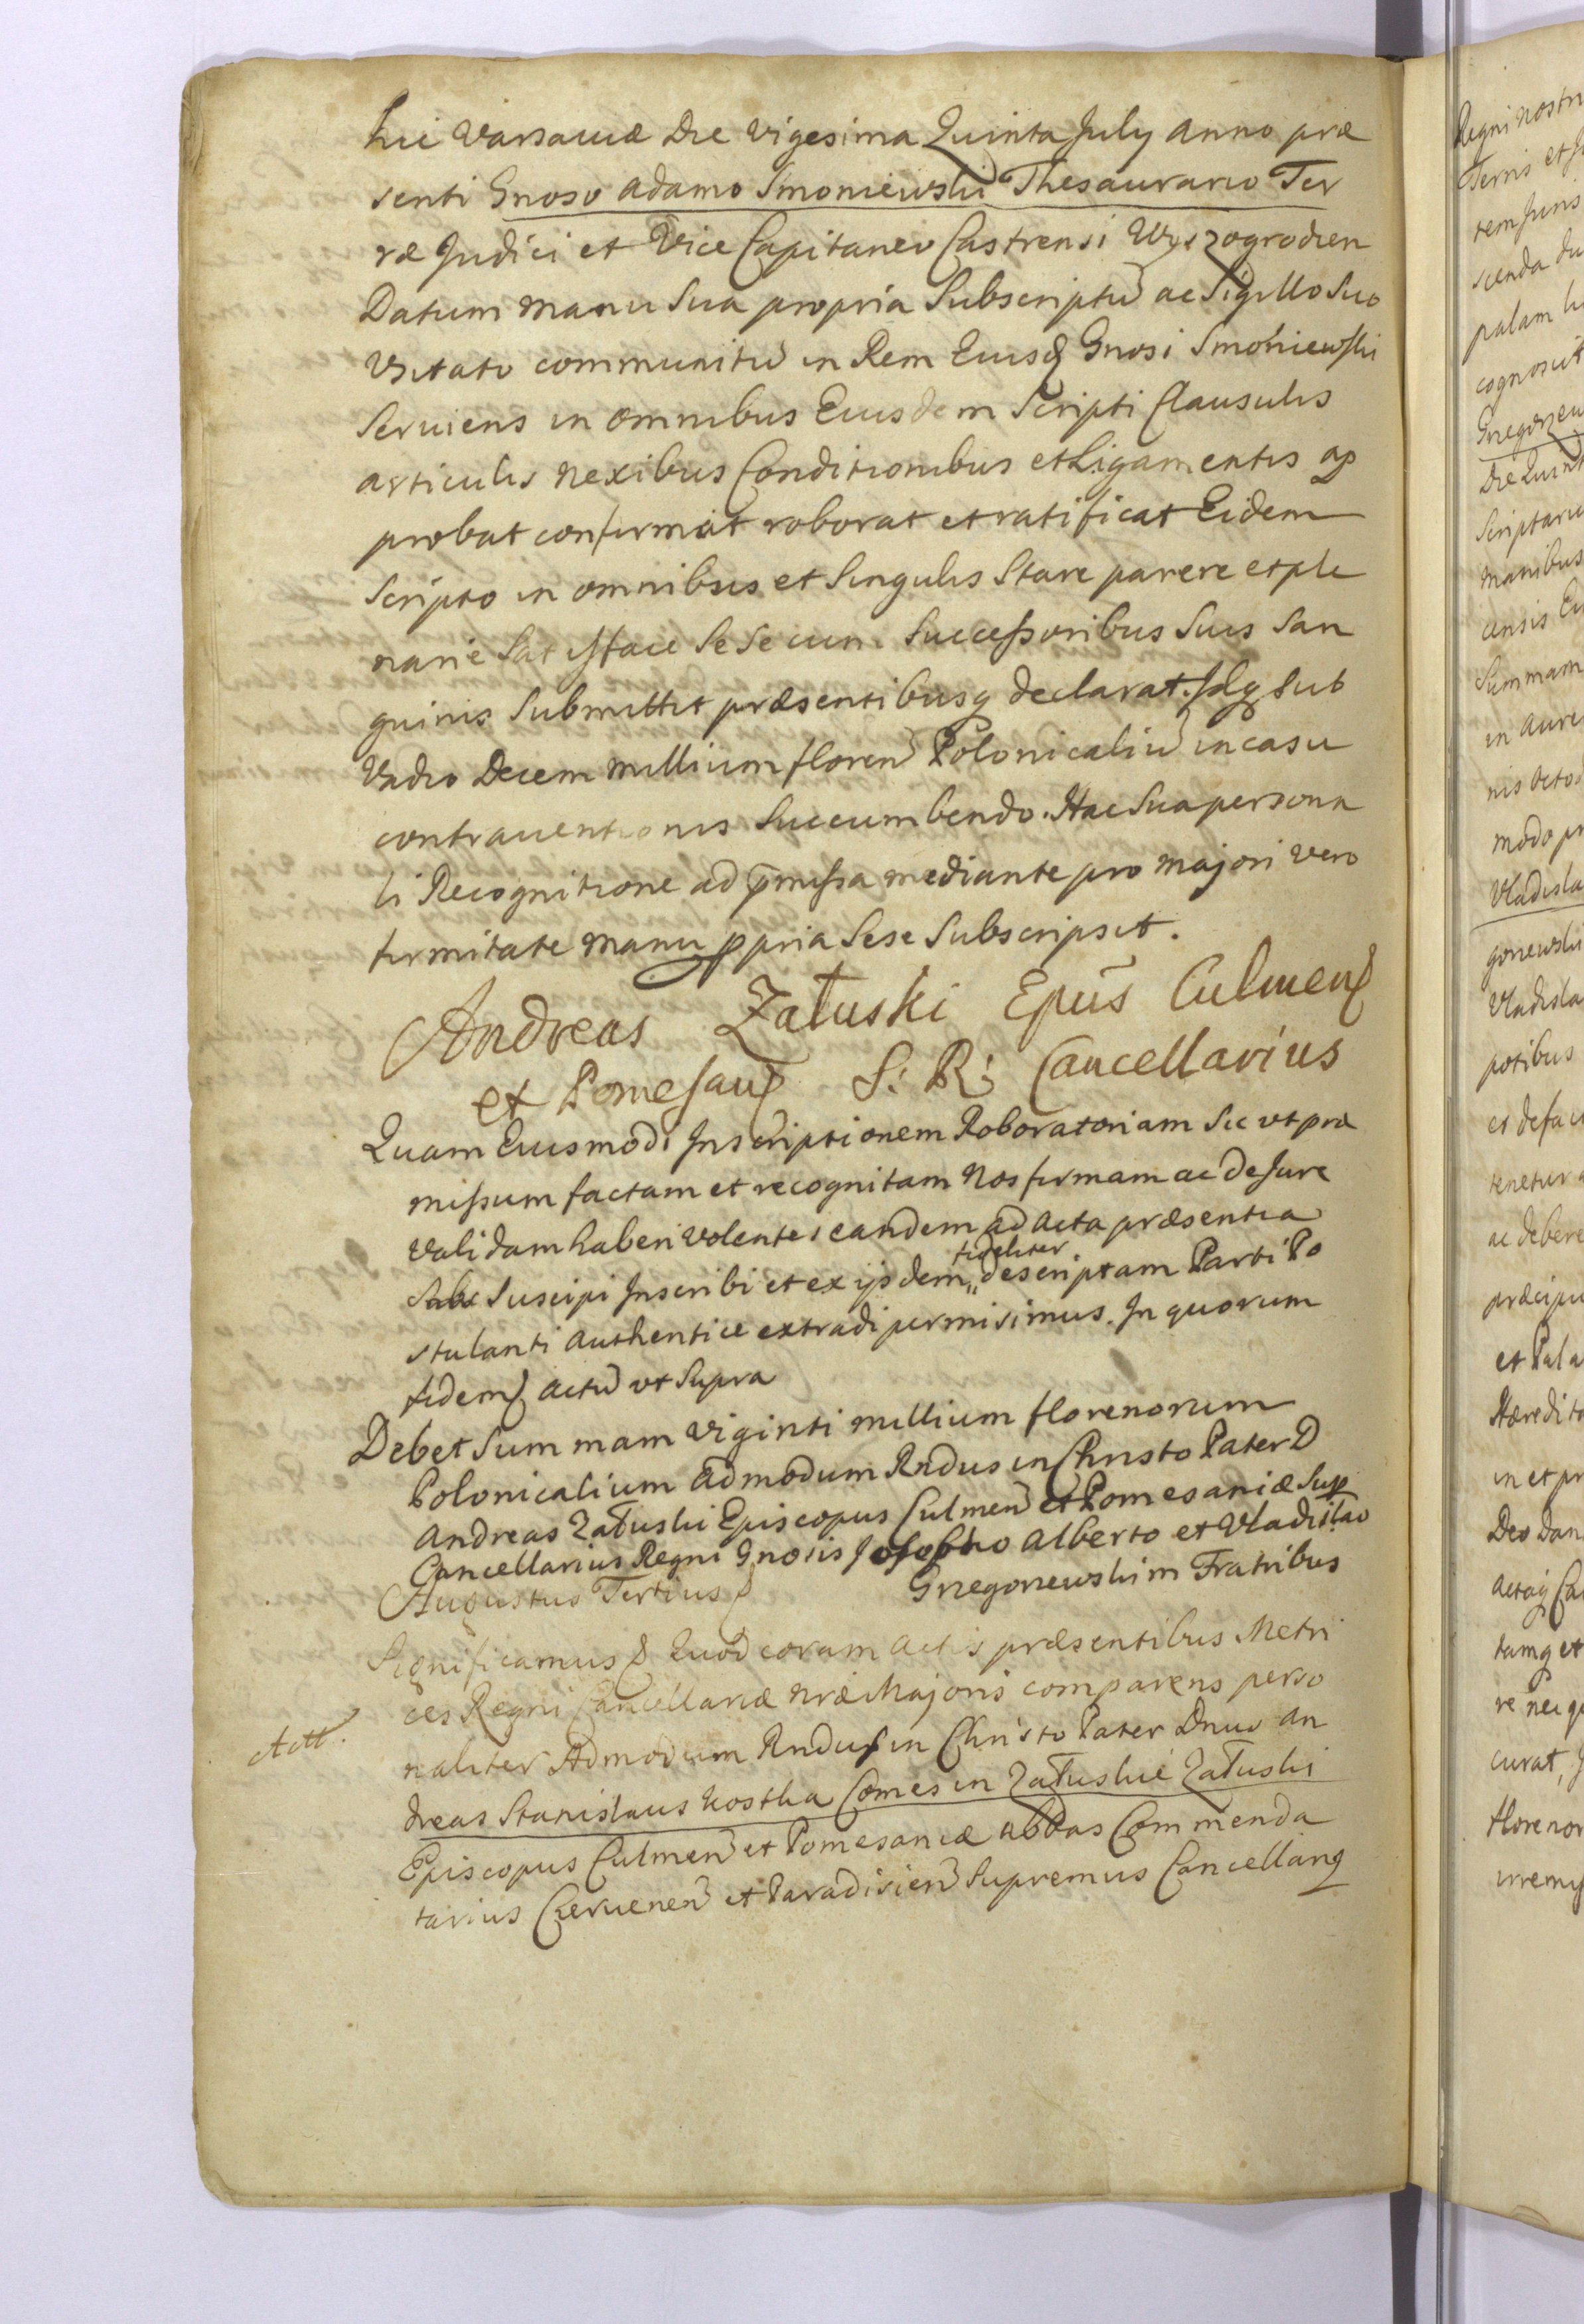 hic Varsaviæ Die Vigesima Quinta July Anno præ
senti Gnoso Adamo Smoniewski Thesaurario Ter
ræ Judici et Vice Capitaneo Castrensi Wyszogrodien
Datum manu sua propria Subscriptũ ac Sigillo suo
Usitato communitũ in Rem Eiusq Gnosi Smoniewski
Serviens in omnibus Eiusdem Scripti Clausulis
articulis nexibus Conditionibus et Ligamentis ap
probat confirmat roborat et ratificat Eidem
Scripto in omnibus et Singulis Stare parere et ple
narie Sese cum Successoribus Suis San
guinis Submittit præsentibusq declarat. Idq sub
Vadio Decem millium floren̄ Polonicaliũ in casu
contraventionis Succumbendo. Hac Sua persona
li Recognitione ad p̄missa mediante pro majori vero
firmitate manu ppria Sese Subscripsit.
Andreas Załuski Epũs Culmens
et Pomesans S: R: Cancellarius
Quam Eiusmodi Inscriptionem Roboratoriam Sic ut præ
missum factam et recognitam Nos firmam ac de Jure
validam haberi volentes eandem ad Acta præsentia
Suscipi Inscribi et ex ijsdem,,
fideliter
descriptam Parti Po
stulanti Authentice extradi permisimus. In quorum
fidem Actũ ut Supra
Debet Summam Viginti millium florenorum
Polonicalium Admodum Rndus in Christo Pater D
Andreas Załuski Episcopus Culmen̄ et Pomesaniæ Sup
Cancellarius Regni Gnosis Josepho Alberto et Vladislao
Grzegorzewskim Fratribus
Augustus Tertius
Significamus Quod coram Actis præsentibus Metri
ces Regni Cancellariæ nræ Majoris comparens perso
naliter Admodum Rndus in Christo Pater Dnus An
Actt.
dreas Stanislaus Kostka Comes in Załuskie Załuski
Episcopus Culmen̄ et Pomesaniæ Abbas Commenda
tarius Czerwenen̄ et Paradisien̄ Supremus Cancellariq
Regni nostri
cognoscit
Scriptaru
manibus
Summam
in aure
nis octo
modo pr
Vladisla
gorzewski
Vladisla
potibus
et defacto
tenetur
ac debere
præcipu
et Pala
Hæredita
in et pr
Deo Dan
re nec
curat,
florenor